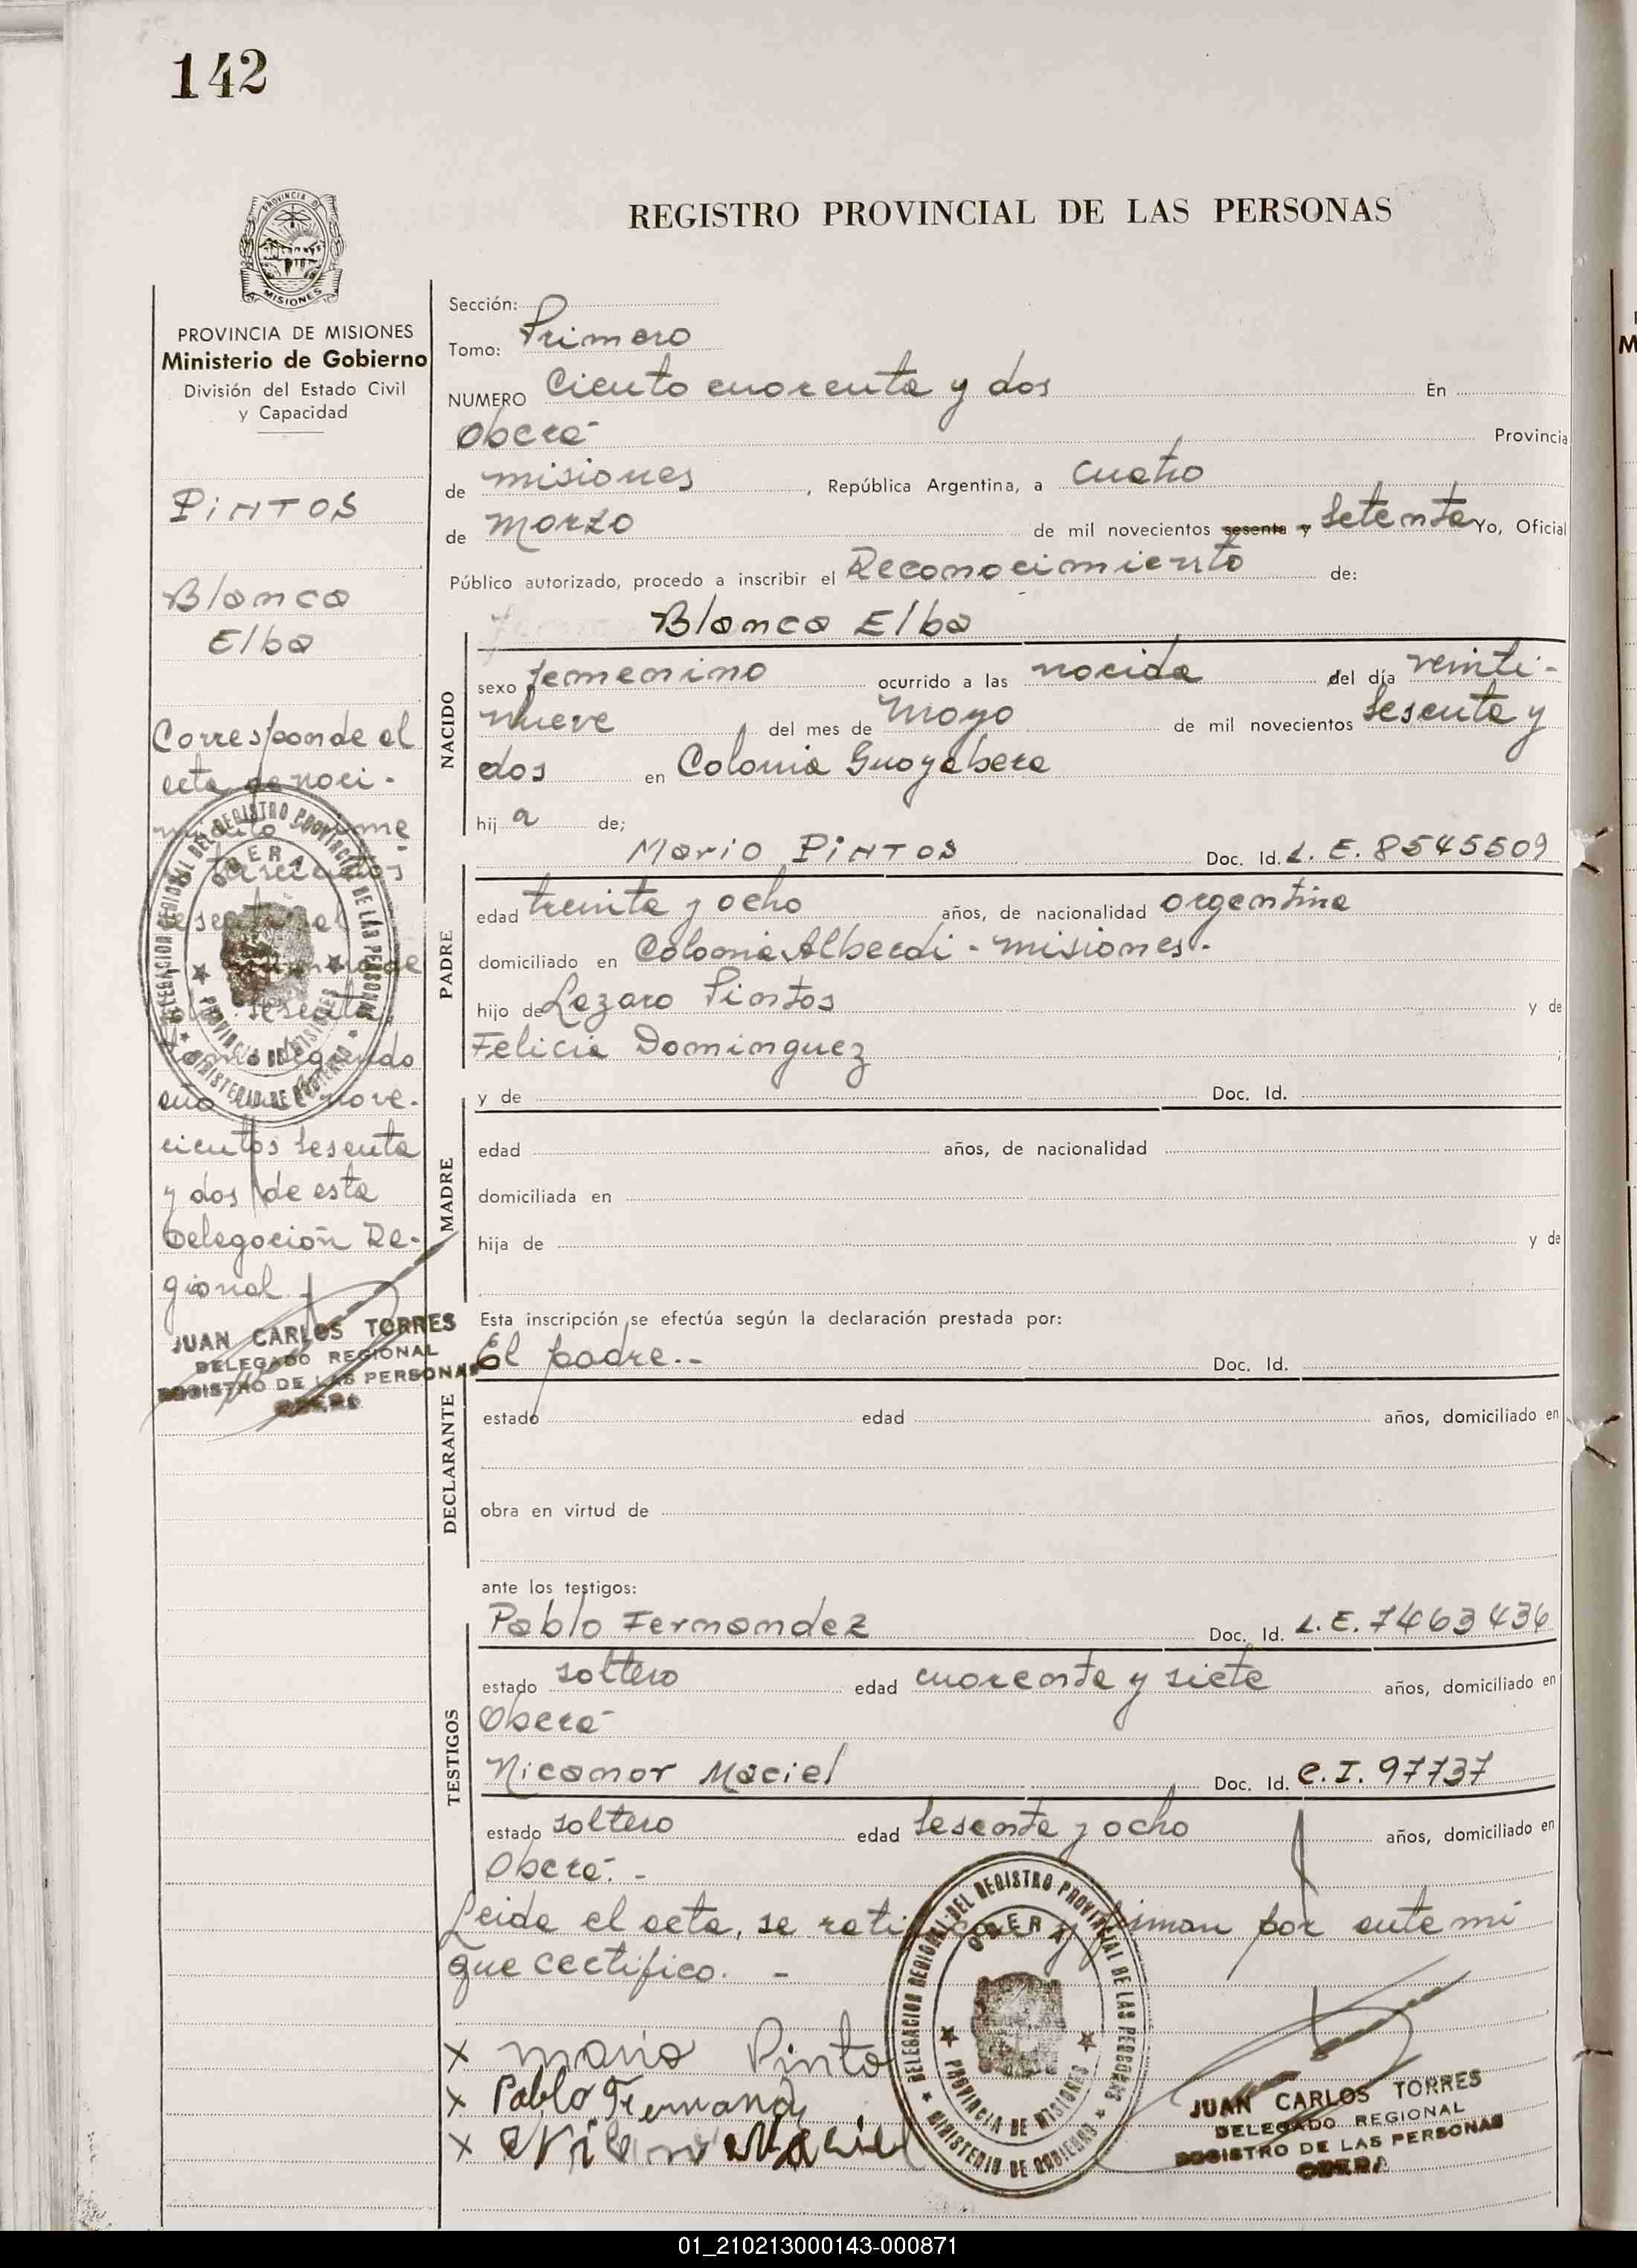 142
REGISTRO PROVINCIAL DE LAS PERSONAS
PROVINCIA DE MISIONES
Ministerio de Gobierno
División del Estado Civil
y Capacidad
PINTOS
Blanca
Elba
Corresponde al
acta de naci-
miento
sesenta
segundo
año nove-
cientos sesenta
y dos de esta
Delegación Re-
gional
JUAN CARLOS TORRES
DELEGADO REGIONAL
REGISTRO DE LAS PERSONAS
OBERA
Sección:
Tomo: Primero
NUMERO Ciento cuarenta y dos En
Oberá Provincia
de Misiones, República Argentina, a cuatro
de Marzo de mil novecientos sesenta y Setenta Yo, Oficial
Público autorizado, procedo a inscribir el Reconocimiento de:
Blanca Elba
NACIDO
sexo femenino ocurrido a las nacida del día veinti-
nueve del mes de Mayo de mil novecientos Sesenta y
dos en Colonia Guayabera
hij a de;
PADRE
Mario PINTOS Doc. Id. L. E. 8545509
edad treinta y ocho años, de nacionalidad argentina
domiciliado en Colonia Alberdi - Misiones.
hijo de Lazaro Pintos y de
Felicia Dominguez
MADRE
y de Doc. Id.
edad años, de nacionalidad
domiciliada en
hija de y de
Esta inscripción se efectúa según la declaración prestada por:
DECLARANTE
El padre.- Doc. Id.
estado edad años, domiciliado en
obra en virtud de
ante los testigos:
TESTIGOS
Pablo Fernandez Doc. Id. L.E. 7463436
estado soltero edad cuarenta y siete años, domiciliado en
Oberá
Nicanor Maciel Doc. Id. C.I. 97737
estado soltero edad Sesenta y ocho años, domiciliado en
Oberá.-
Leida el acta, se ratifican y firman por ante mi
que certifico. -
x Mario Pinto
x Pablo Fernand
x Maciel
DELEGACION REGIONAL DEL REGISTRO PROVINCIAL DE LAS PERSONAS
OBERA
PROVINCIA DE MISIONES
MINISTERIO DE GOBIERNO
JUAN CARLOS TORRES
DELEGADO REGIONAL
REGISTRO DE LAS PERSONAS
OBERA
01_210213000143-000871